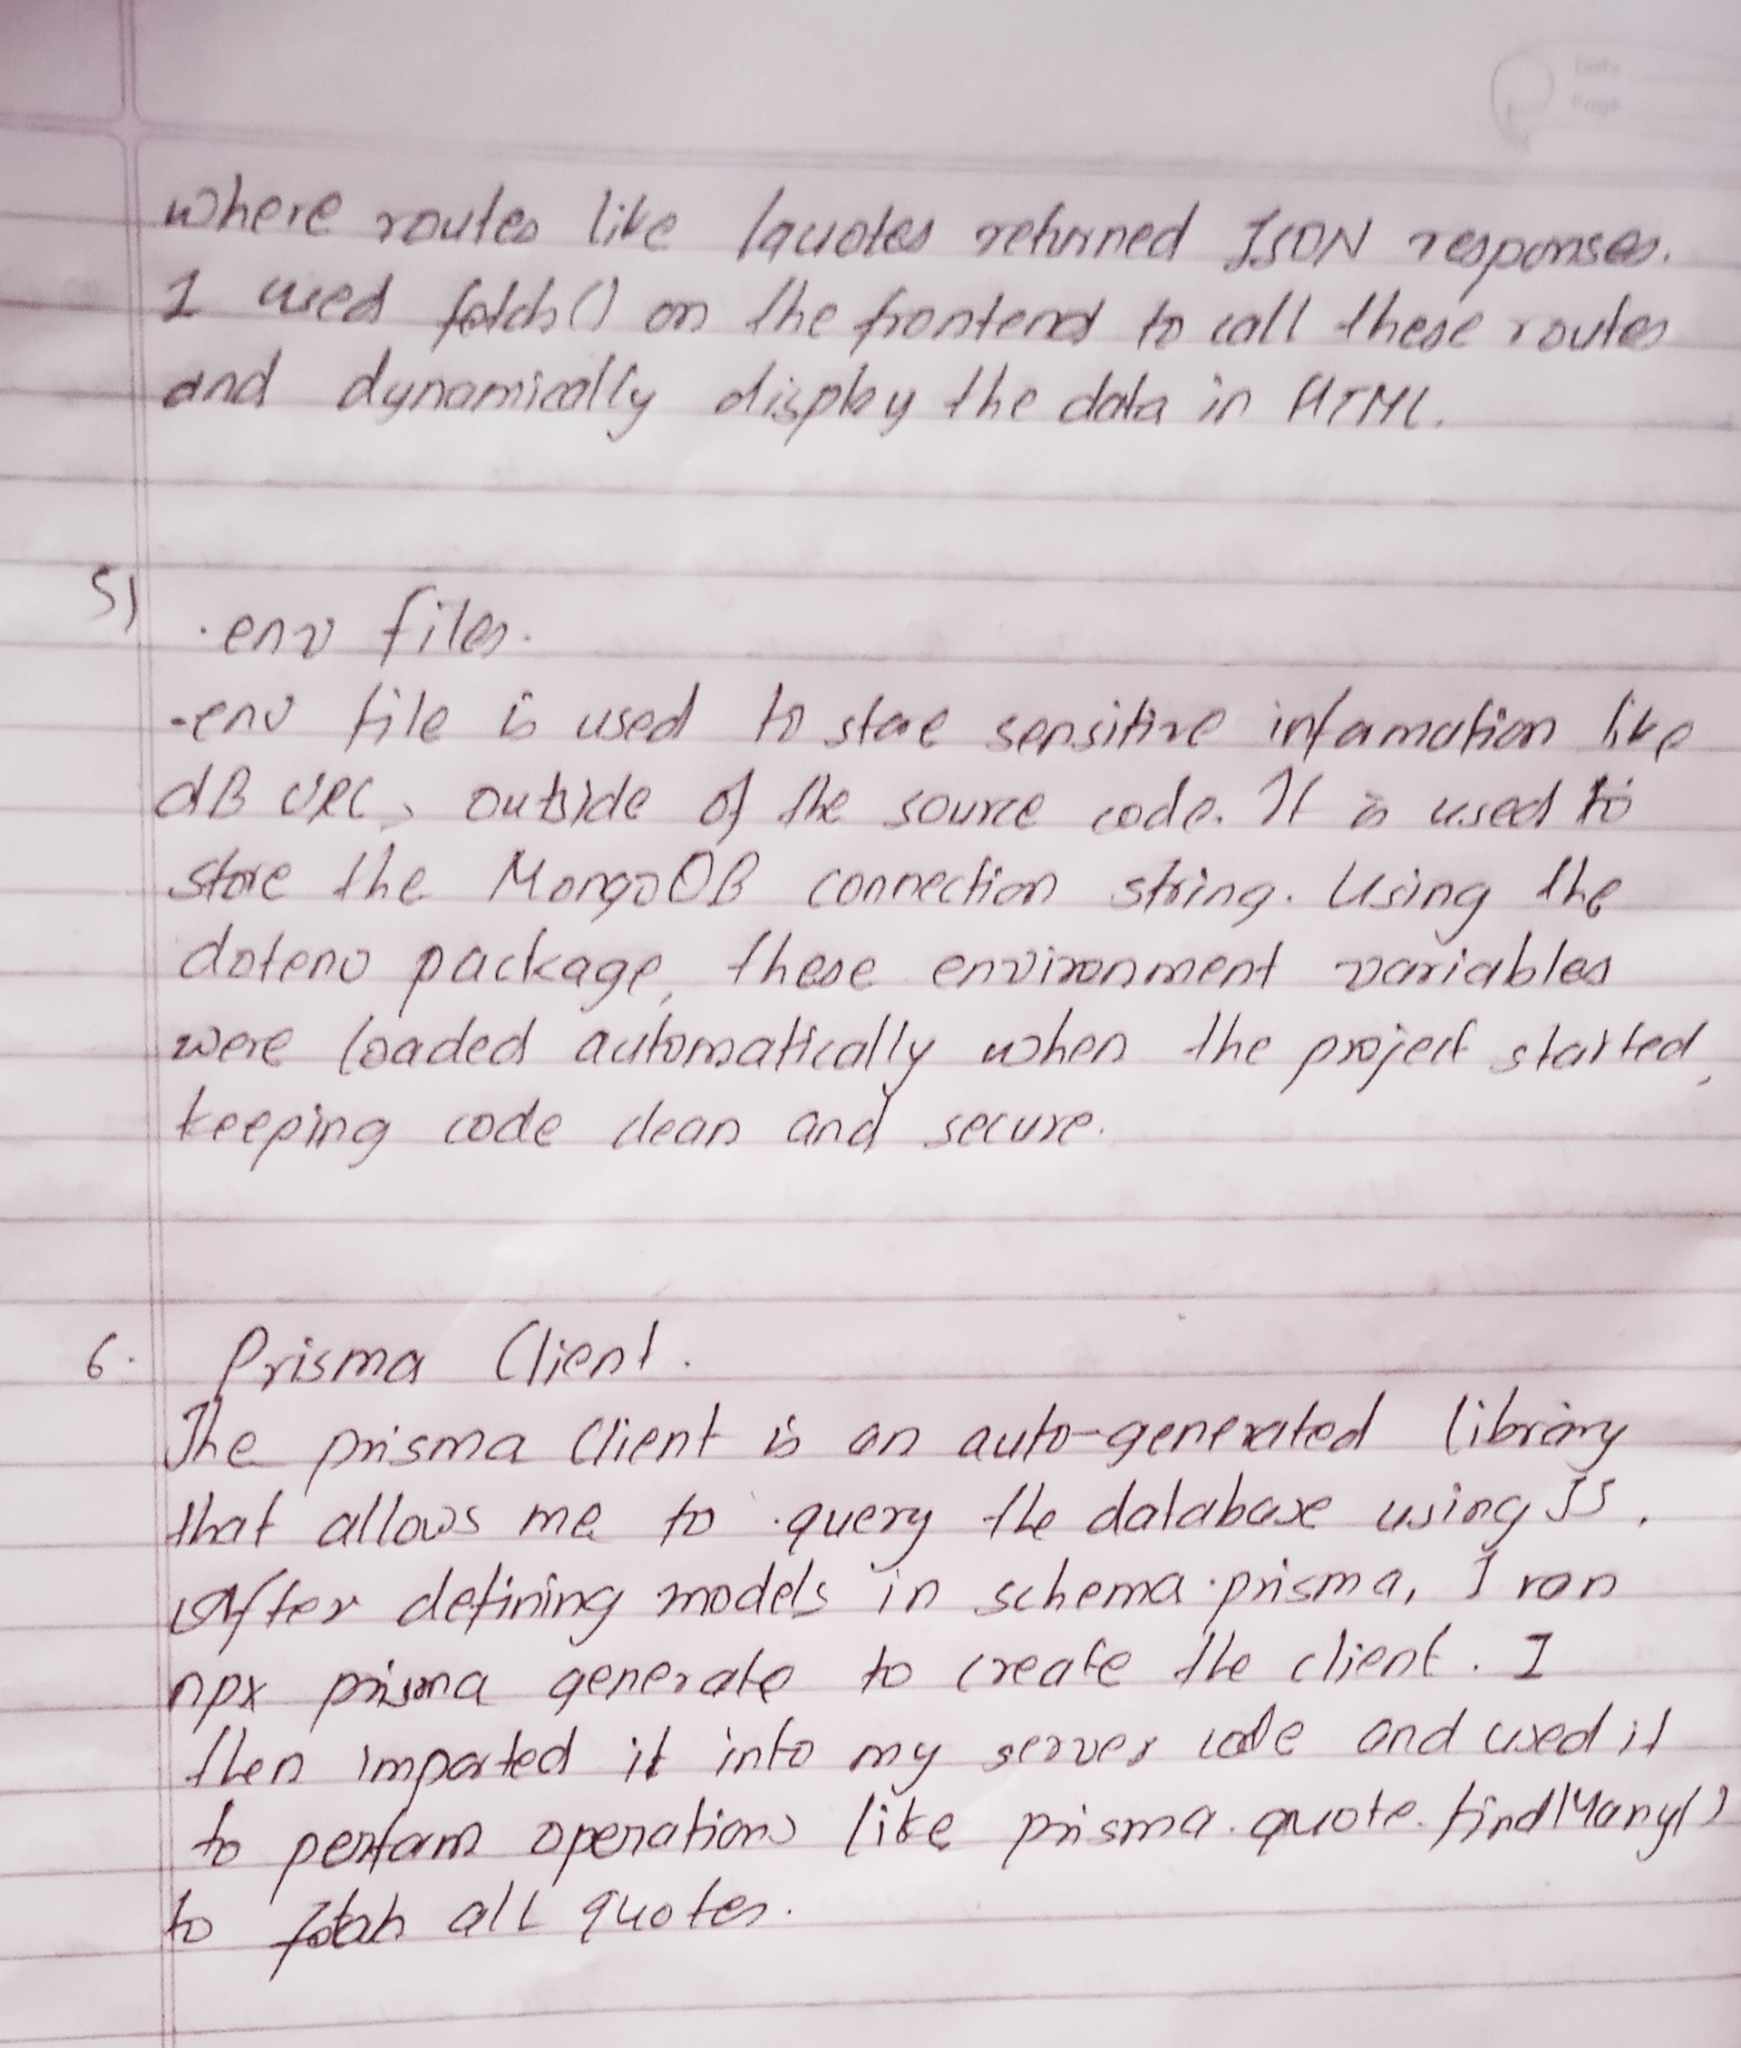 Date
Page
where routes like /quotes returned JSON responses.
I used fetch() on the frontend to call these routes
and dynamically display the data in HTML.
5)
.env files.
.env file is used to store sensitive information like
dB URL, outside of the source code. It is used to
store the MongoDB connection string. Using the
dotenv package, these environment variables
were loaded automatically when the project started,
keeping code clean and secure.
6. Prisma Client.
The prisma Client is an auto-generated library
that allows me to query the database using JS.
After defining models in schema.prisma, I ran
npx prisma generate to create the client. I
then imported it into my server code and used it
to perform operations like prisma.quote.findMany()
to fetch all quotes.